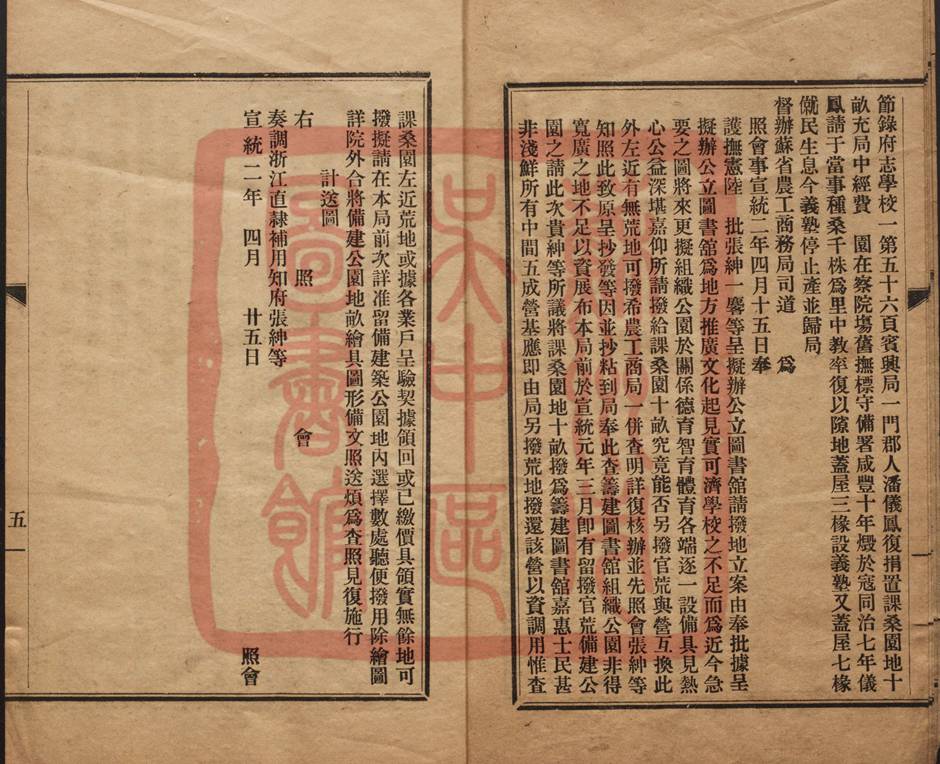 節錄府志學校一第五十六頁賓興局一門郡人潘儀鳳復捐置課桑園地十
畝充局中經費　園在察院塲舊撫標守備署咸豐十年燬於寇同治七年儀
鳳請于當事種桑千株爲里中教率復以隙地蓋屋三椽設義塾又蓋屋七椽
僦民生息今義塾停止產並歸局
督辦蘇省農工商務局司道　爲
照會事宣統二年四月十五日奉
護撫憲陸　批張紳一麐等呈擬辦公立圖書館請撥地立案由奉批據呈
擬辦公立圖書舘爲地方推廣文化起見實可濟學校之不足而爲近今急
要之圖將來更擬組織公園於關係德育智育體育各端逐一設備具見熱
心公益深堪嘉仰所請撥給課桑園十畝究竟能否另撥官荒與營互換此
外左近有無荒地可撥希農工商局一併查明詳復核辦並先照會張紳等
知照此致原呈抄發等因並抄粘到局奉此查籌建圖書舘組織公園非得
寬廣之地不足以資展布本局前於宣統元年三月卽有留撥官荒備建公
園之請此次貴紳等所議將課桑園地十畝撥爲籌建圖書舘嘉惠士民甚
非淺鮮所有中間五成營基應即由局另撥荒地撥還該營以資調用惟查
課桑園左近荒地或據各業戶呈驗契據領回或已繳價具領實無餘地可
撥擬請在本局前次詳准留備建築公園地內選擇數處聽便撥用除繪圖
詳院外合將備建公園地畝繪具圖形備文照送煩爲查照見復施行
計送圖
右　照　會
奏調浙江直隸補用知府張紳等
宣統二年　四月　廿五日　照會
五
吳中區
圖書館